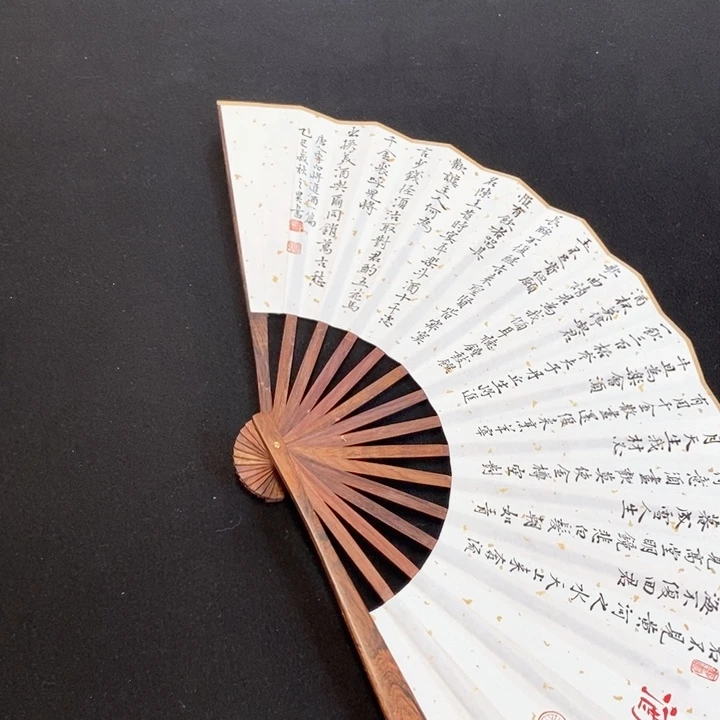 君不見黃河之水天上來奔流
海不復回君
見高堂明鏡悲白髮朝如青
暮成雪人生
得意須盡歡莫使金樽空對
月天生我材必
有用千金散盡還復來烹羊宰
牛且為樂會須
一飲三百杯岑夫子丹丘生將進
酒杯莫停與君
歌一曲請君為我傾耳聽鐘鼓饌
玉不足貴但願
長醉不復醒古來聖賢皆寂寞
惟有飲者留其
名陳王昔時宴平樂斗酒十千恣
歡謔主人何為
言少錢徑須沽取對君酌五花馬
千金裘呼兒將
出換美酒與爾同銷萬古愁
唐人李白將進酒一篇
乙巳歲秋書